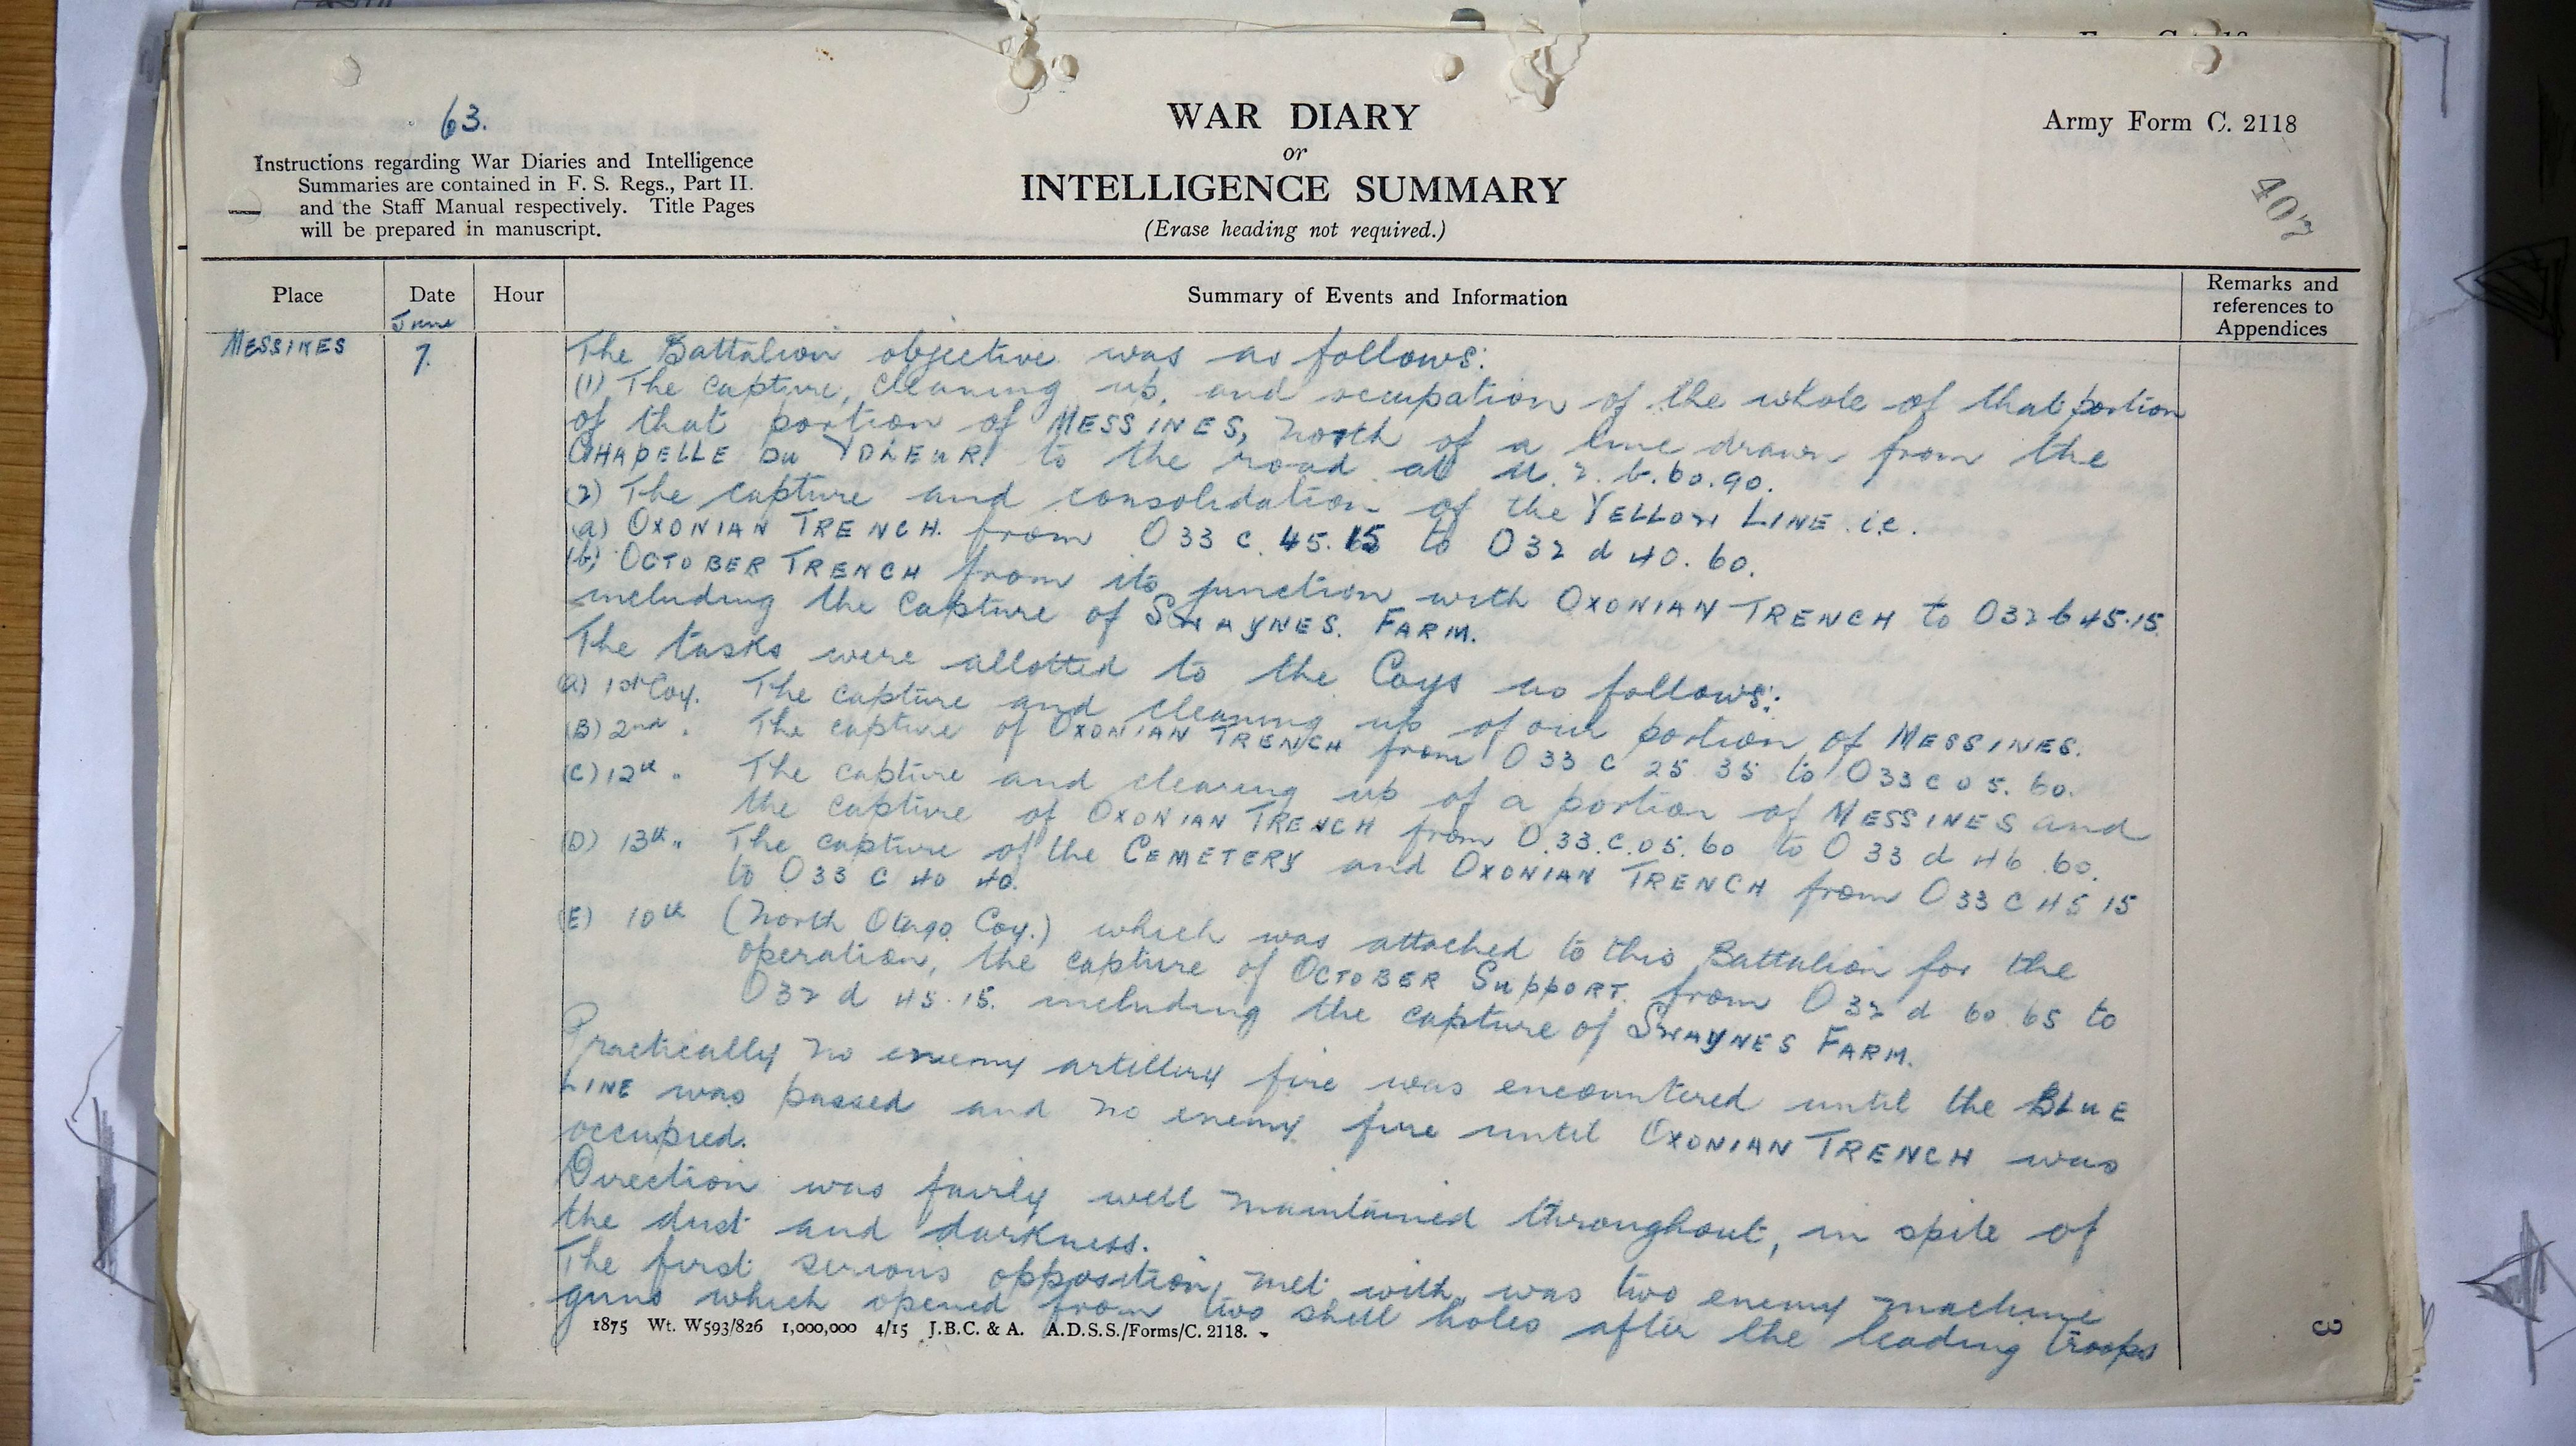 63.
Instructions regarding War Diaries and Intelligence
Summaries are contained in F. S. Regs., Part II.
and the Staff Manual respectively. Title Pages
will be prepared in manuscript.
WAR DIARY
or
INTELLIGENCE SUMMARY
(Erase heading not required.)
Army Form C. 2118
407
Place
Date
Hour
Summary of Events and Information
Remarks and
references to
Appendices
June
MESSINES
7.
The Battalion objective was as follows:
(1) The capture, cleaning up, and occupation of the whole of that portion
of that portion of MESSINES, north of a line drawn from the
CHAPELLE DU to the road at U. 2. b. 60. 90.
(2) The capture and consolidation of the YELLOW LINE i.e.
(a) OXONIAN TRENCH. from O 33 c. 45. 15 to O 32 d 40. 60.
(b) OCTOBER TRENCH from its junction with OXONIAN TRENCH to O 32 b 45.15.
including the capture of SWAYNES. FARM.
The tasks were allotted to the Coys as follows:
(A) 1st Coy. The capture and cleaning up of our portion of MESSINES.
(B) 2nd " The capture of OXONIAN TRENCH from O 33 c 25 35 to O 33 c 05. 60.
(C) 12th " The capture and clearing up of a portion of MESSINES and
the capture of OXONIAN TRENCH from O.33.c.05.60 to O 33 d 46.60.
(D) 13th " The capture of the CEMETERY and OXONIAN TRENCH from O 33 c 45 15
to O 33 c 40 40.
(E) 10th (North Otago Coy.) which was attached to this Battalion for the
operation, the capture of OCTOBER SUPPORT. from O 32 d 60. 65 to
O 32 d 45.15. including the capture of SWAYNES FARM.
Practically no enemy artillery fire was encountered until the BLUE
LINE was passed and no enemy fire until OXONIAN TRENCH was
occupied.
Direction was fairly well maintained throughout, in spite of
the dust and darkness.
The first serious opposition met with was two enemy machine
guns which opened from two shell holes after the leading troops
1875 Wt. W593/826 1,000,000 4/15 J.B.C. & A. A.D.S.S./Forms/C. 2118.
3